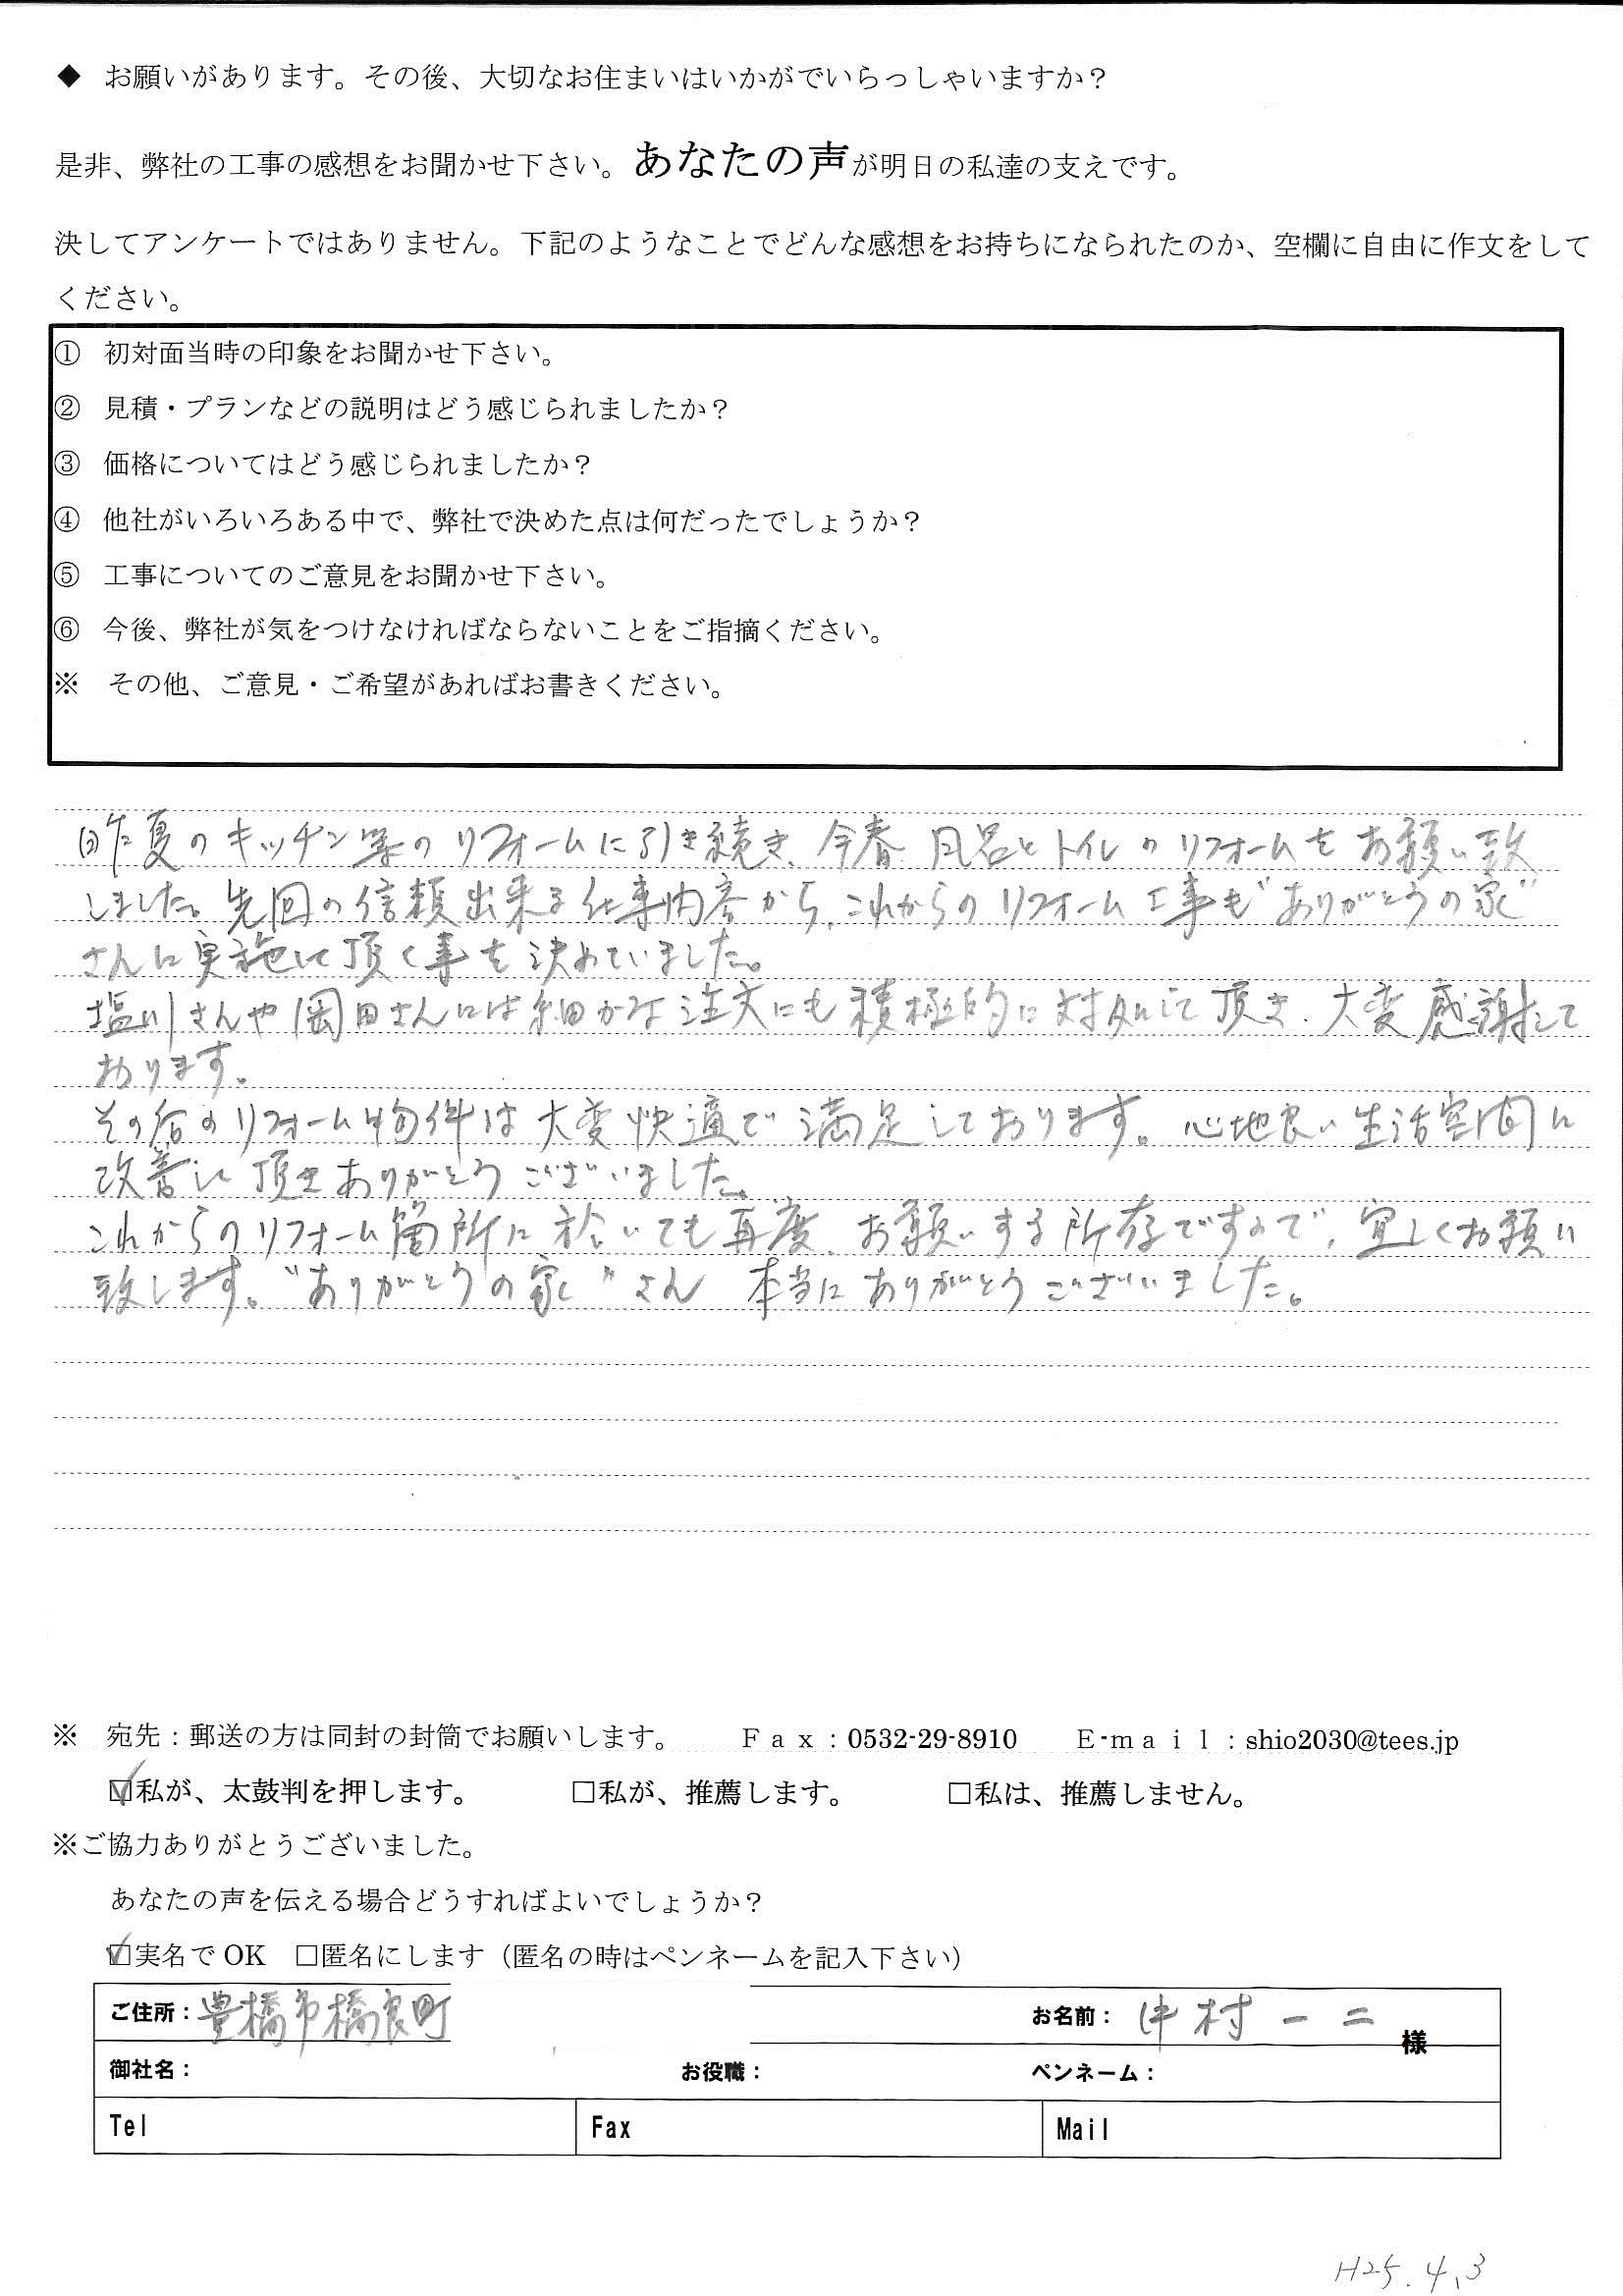 ◆ お願いがあります。その後、大切なお住まいはいかがでいらっしゃいますか？
是非、弊社の工事の感想をお聞かせ下さい。あなたの声が明日の私達の支えです。
決してアンケートではありません。下記のようなことでどんな感想をお持ちになられたのか、空欄に自由に作文をして
ください。
① 初対面当時の印象をお聞かせ下さい。
② 見積・プランなどの説明はどう感じられましたか？
③ 価格についてはどう感じられましたか？
④ 他社がいろいろある中で、弊社で決めた点は何だったでしょうか？
⑤ 工事についてのご意見をお聞かせ下さい。
⑥ 今後、弊社が気をつけなければならないことをご指摘ください。
※ その他、ご意見・ご希望があればお書きください。
昨夏のキッチン等のリフォームに引き続き、今春 风呂とトイレのリフォームをお願い致
しました。先回の信頼出来る仕事内容から、これからのリフォーム工事も"ありがとうの家"
さんに実施して頂く事を決めていました。
塩川さんや岡田さんには細かな注文にも積極的に対処して頂き、大変感謝して
おります。
その后のリフォーム物件は大変快適で満足しております。心地良い生活空間に
改善して頂きありがとうございました。
これからのリフォーム箇所に於いても再度、お願いする所存ですので、宜しくお願い
致します。"ありがとうの家"さん 本当にありがとうございました。
※ 宛先：郵送の方は同封の封筒でお願いします。 Ｆａｘ：0532-29-8910 Ｅ-ｍａｉｌ：shio2030@tees.jp
☑私が、太鼓判を押します。 □私が、推薦します。 □私は、推薦しません。
※ご協力ありがとうございました。
あなたの声を伝える場合どうすればよいでしょうか？
☑実名で OK □匿名にします（匿名の時はペンネームを記入下さい）
ご住所：豊橋市橋良町 お名前：中村一二 様
御社名： お役職： ペンネーム：
Tel Fax Mail
H25.4.3